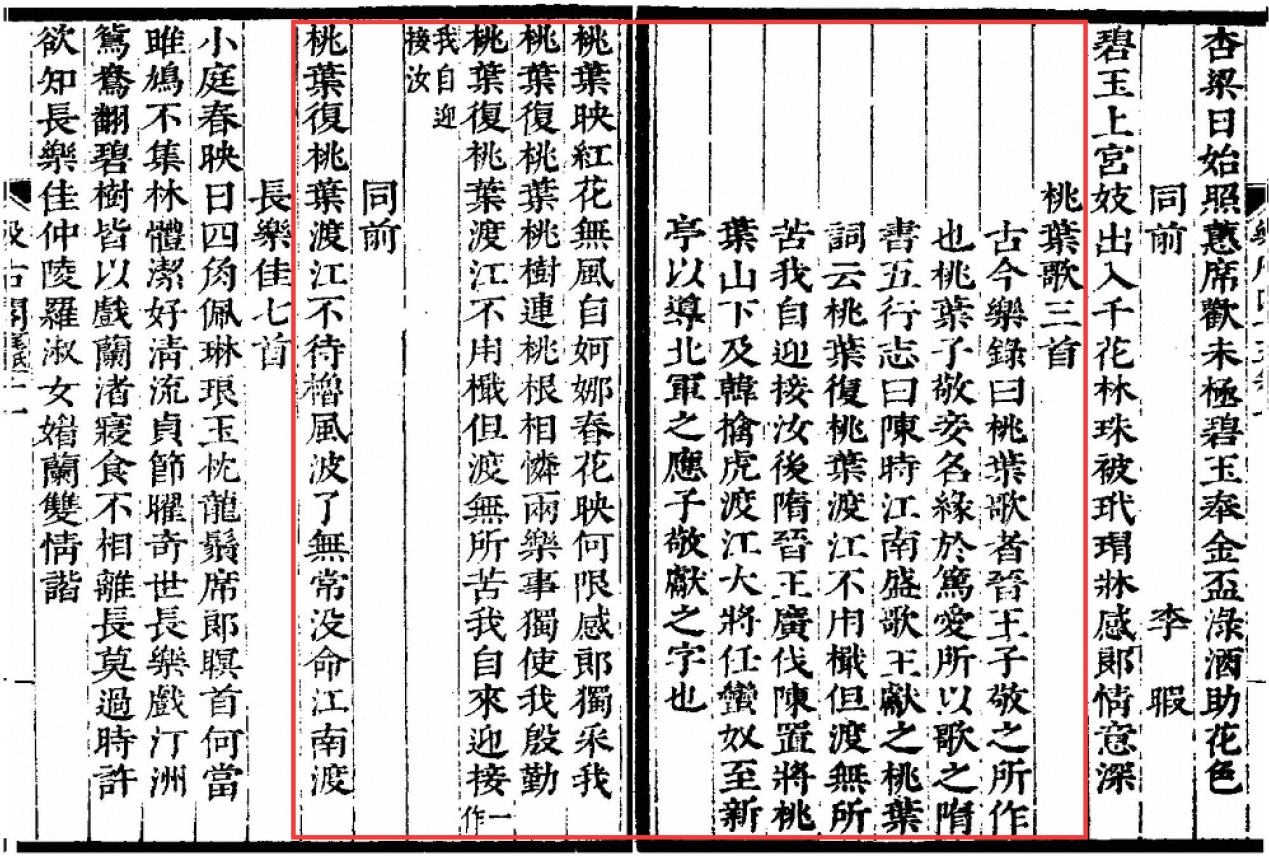 杏梁日始照蕙席歡未極碧玉奉金盃淥酒助花色
同前 李暇
碧玉上宮妓出入千花林珠被玳瑁牀感郎情意深
桃葉歌三首
古今樂錄曰桃葉歌者晉王子敬之所作
也桃葉子敬妾名緣於篤愛所以歌之隋
書五行志曰陳時江南盛歌王獻之桃葉
詞云桃葉復桃葉渡江不用檝但渡無所
苦我自迎接汝後隋晉王廣伐陳置將桃
葉山下及韓擒虎渡江大將任蠻奴至新
亭以導北軍之應子敬獻之字也
桃葉映紅花無風自婀娜春花映何限感郎獨采我
桃葉復桃葉桃樹連桃根相憐兩樂事獨使我殷勤
桃葉復桃葉渡江不用檝但渡無所苦我自來迎接一作
我自迎
接汝
同前
桃葉復桃葉渡江不待櫓風波了無常没命江南渡
長樂佳七首
小庭春映日四角佩琳琅玉枕龍鬚席郎瞑首何當
雎鳩不集林體潔好淸流貞節曜奇世長樂戲汀洲
鴛鴦翻碧樹皆以戲蘭渚寢食不相離長莫過時許
欲知長樂佳仲陵羅淑女媚蘭雙情諧